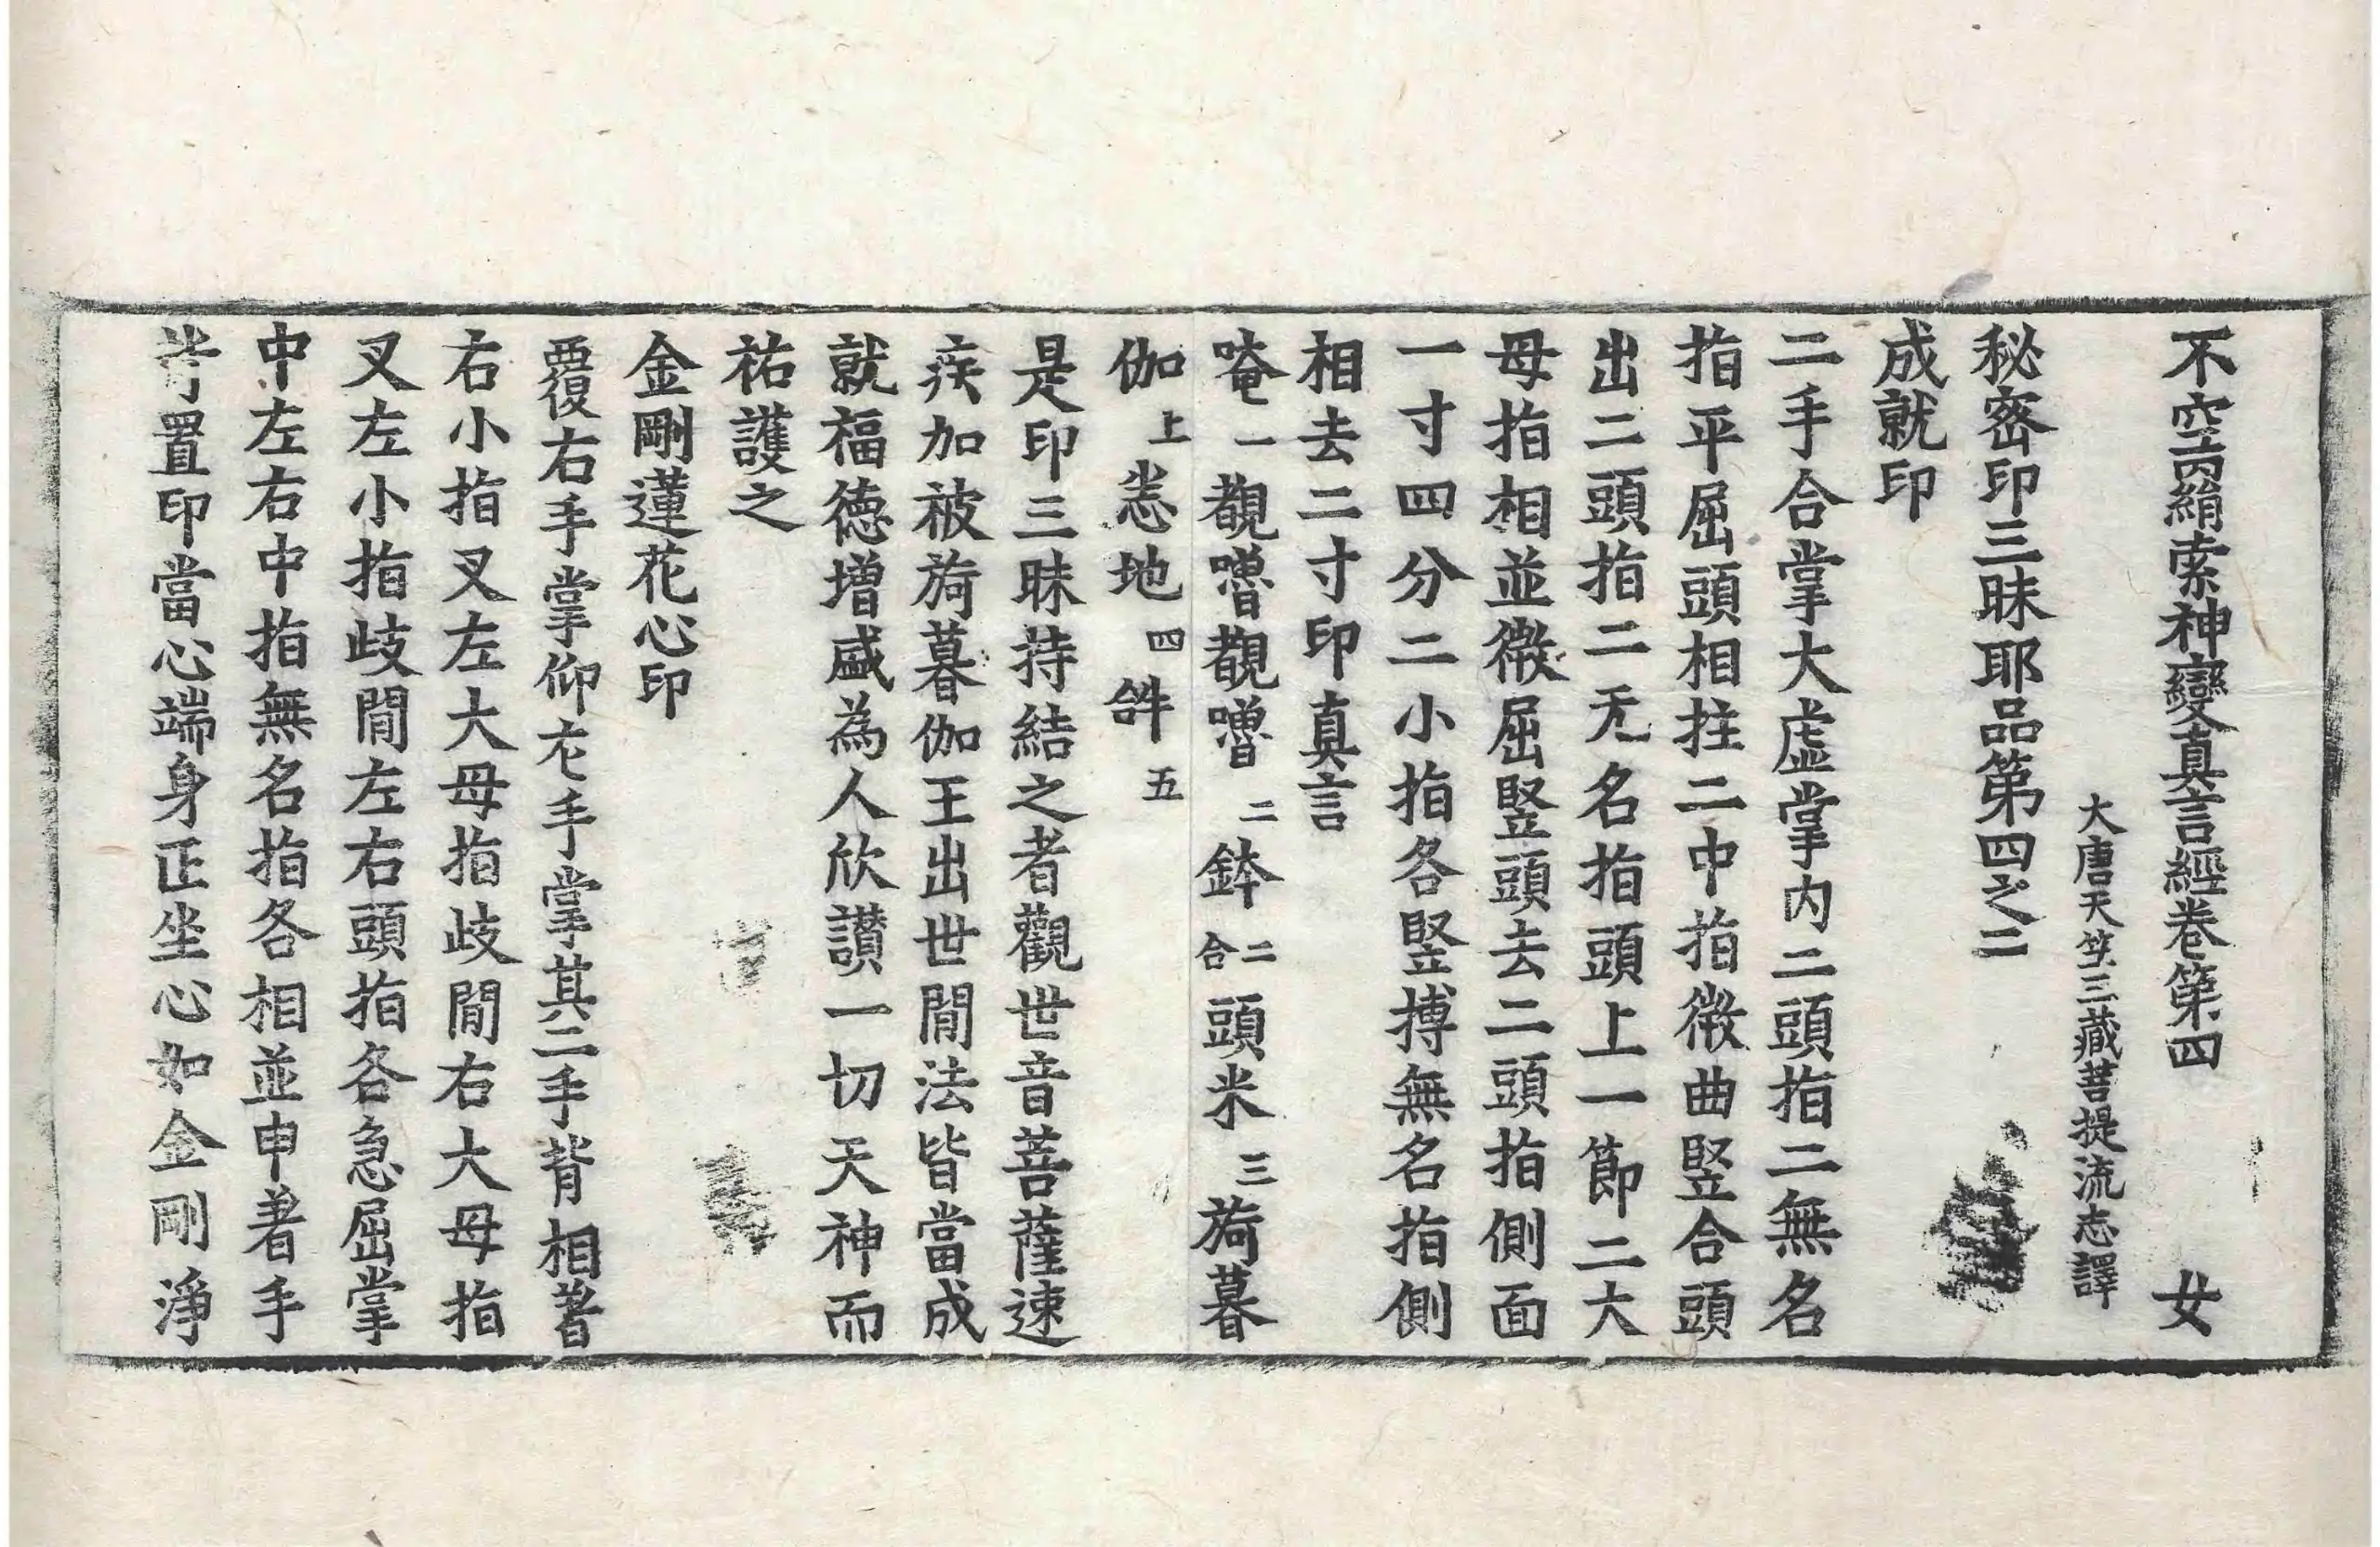 不空罥索神變真言經卷第四 女
大唐天竺三藏菩提流志譯
秘密印三昧耶品第四之二
成就印
二手合掌大虛掌内二頭指二無名
指平屈頭相拄二中指微曲豎合頭
出二頭指二无名指頭上一節二大
母指相並微屈豎頭去二頭指側面
一寸四分二小指各豎搏無名指側
相去二寸印真言
唵一覩嚕覩嚕二鉢二合頭米三旖暮
伽上悉地四𤙖五
是印三昧持結之者觀世音菩薩速
疾加被旖暮伽王出世間法皆當成
就福德增盛為人欣讚一切天神而
祐護之
金剛蓮花心印
覆右手掌仰左手掌其二手背相著
右小指叉左大母指歧間右大母指
叉左小指歧間左右頭指各急屈掌
中左右中指無名指各相並申著手
背置印當心端身正坐心如金剛淨